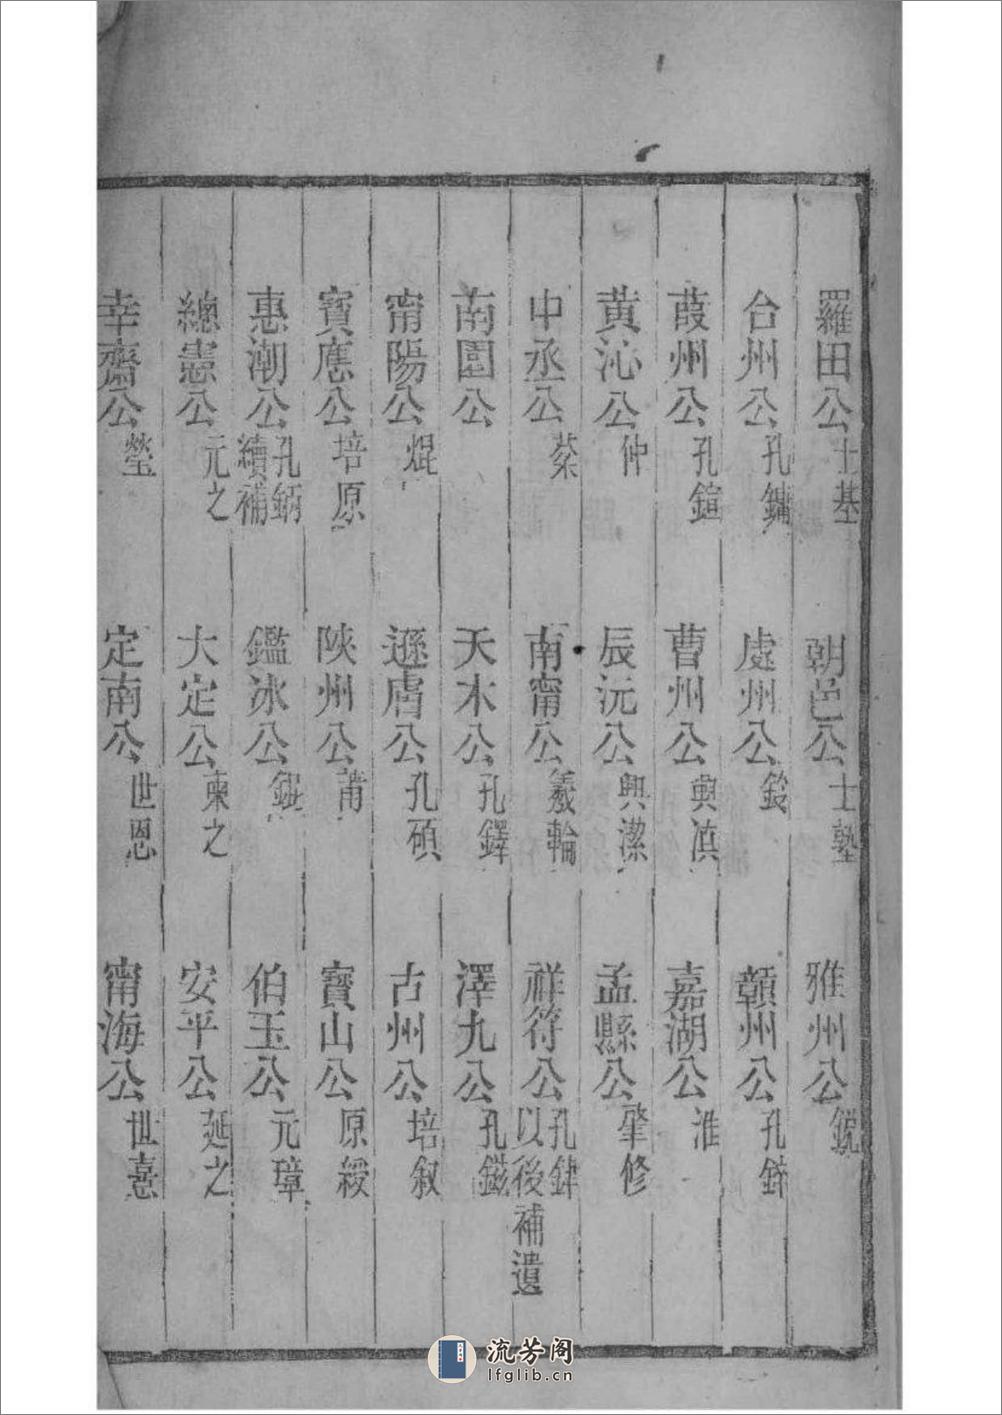 羅田公 士基 朝邑公 士塾 雅州公 銳
台州公 孔鏞 處州公 鋑 贛州公 孔鉌
葭州公 孔鍹 曹州公 興滇 嘉湖公 淮
黃沁公 仲 辰沅公 興潔 孟縣公 肇修
中丞公 棻 南甯公 羲輪 祥符公 孔銉 以後補遺
南園公 天木公 孔鐸 澤九公 孔鎡
甯陽公 焜 遜膚公 孔碩 古州公 培叙
寳應公 培原 陝州公 莆 寳山公 原綬
惠潮公 孔鈵 續補 鑑冰公 錕 伯玉公 元璋
總憲公 元之 大定公 柬之 安平公 延之
幸齋公 瑩 定南公 世恩 甯海公 世憙
流芳阁
lfglib.cn